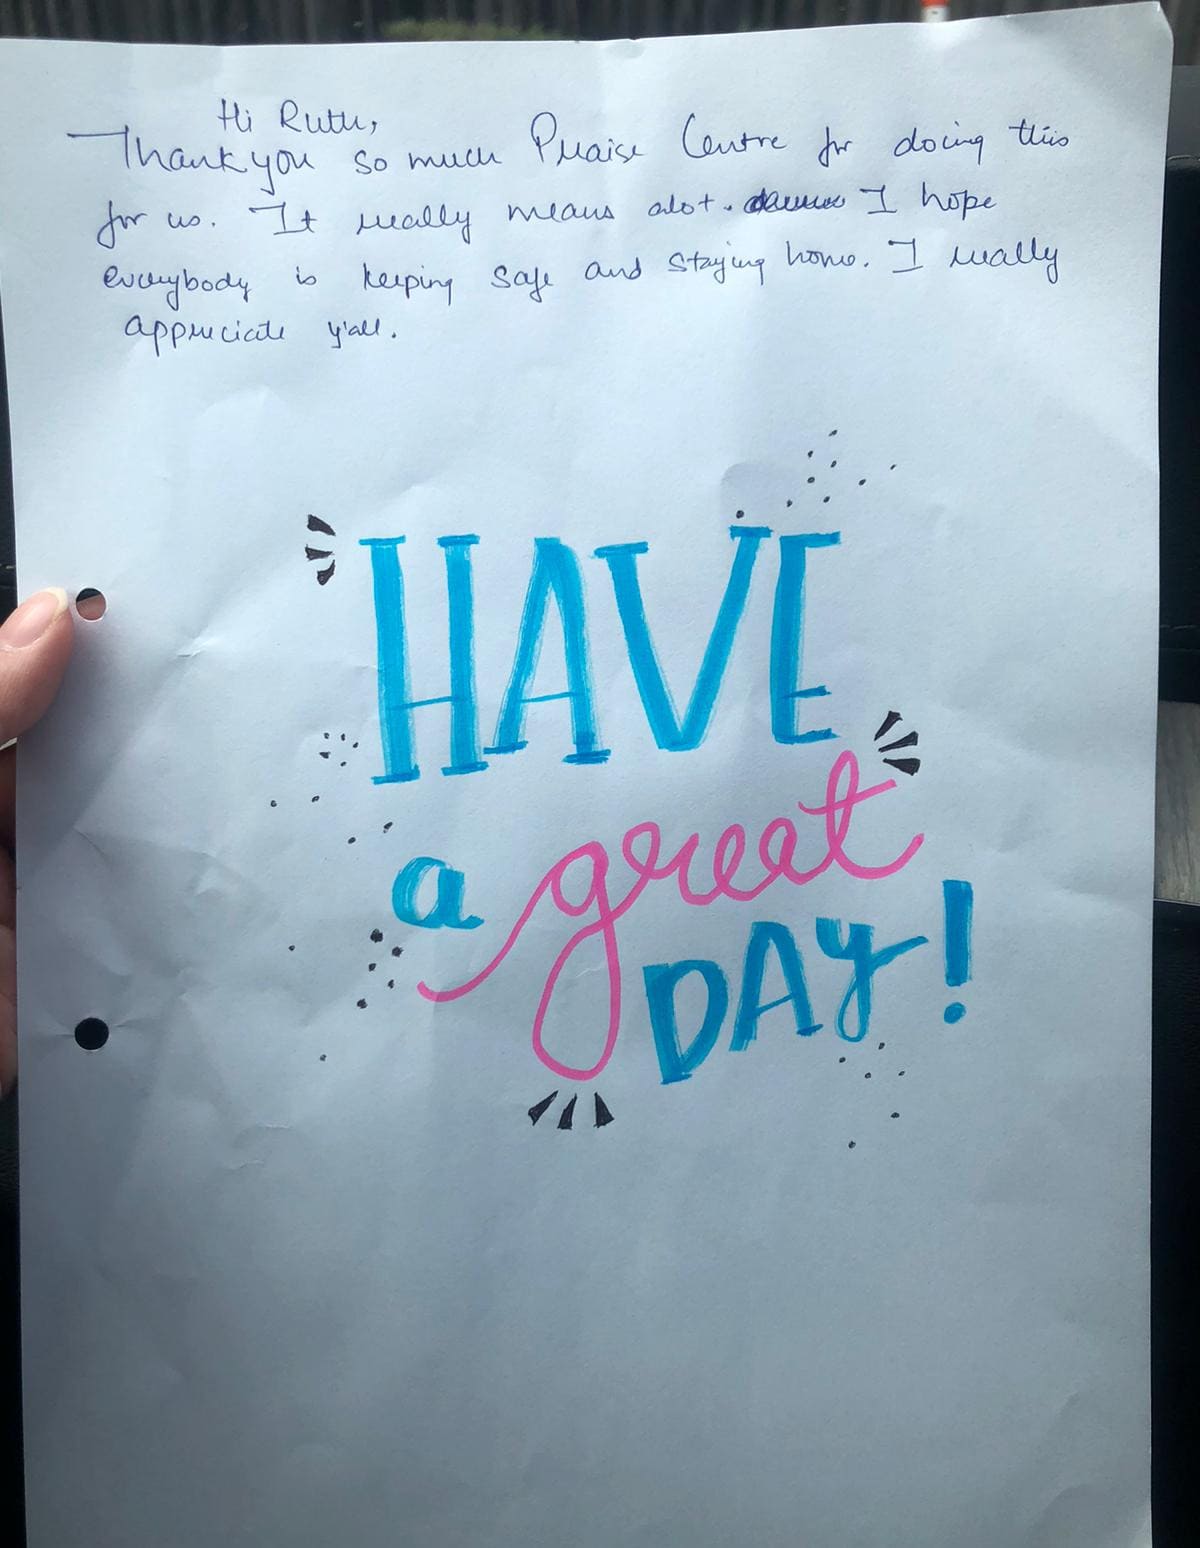 Hi Ruth,
Thank you so much Praise Centre for doing this
for us. It really means alot. I hope
everybody is keeping safe and staying home. I really
appreciate y'all.
HAVE
a great
DAY!